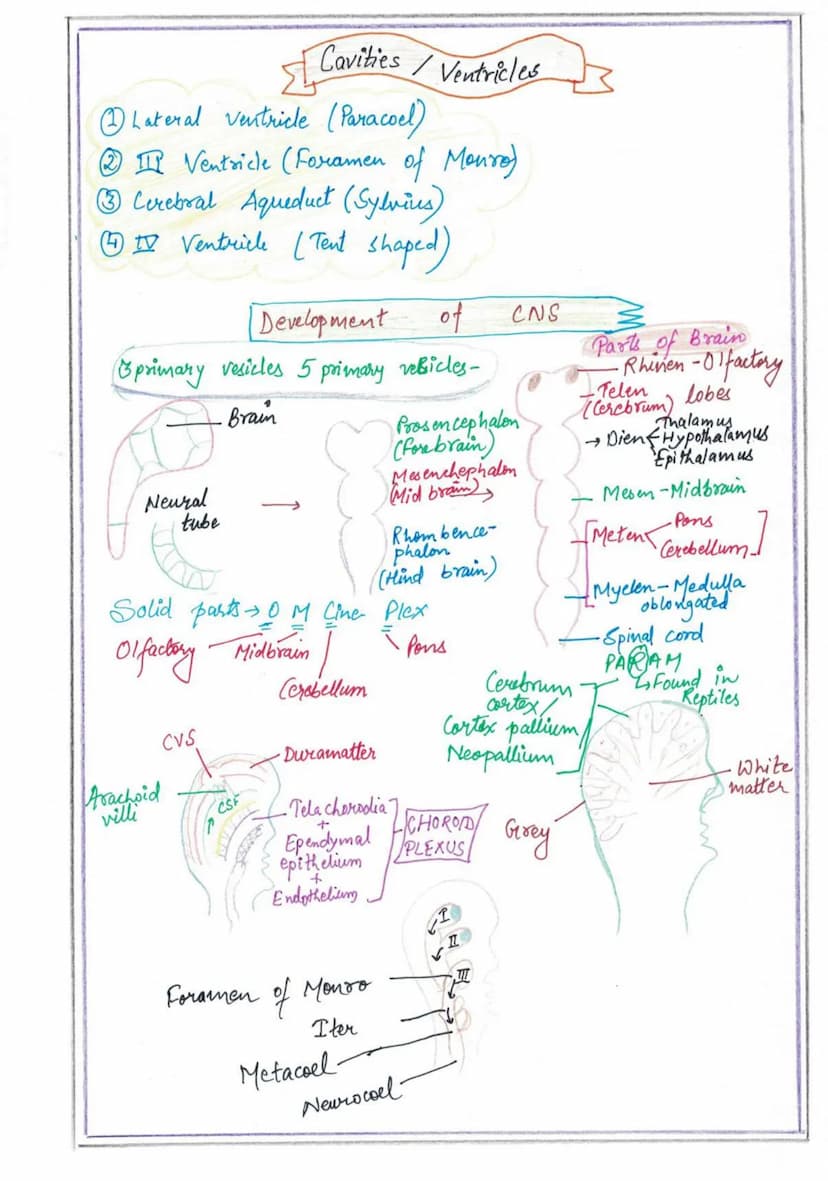 Cavities / Ventricles
① Lateral ventricle (Paracoel)
② III Ventricle (Foramen of Monro)
③ Cerebral Aqueduct (Sylvius)
④ IV Ventricle (Tent shaped)
Development of CNS
3 primary vesicles 5 primary vesicles-
Brain
Neural
tube
Prosencephalon
(Forebrain)
Mesenchephalon
(Mid brain)
Rhombence-
phalon
(Hind brain)
Parts of Brain
Rhinen - Olfactory
lobes
Telen
(Cerebrum)
Dien
Thalamus
Hypothalamus
Epithalamus
Mesen - Midbrain
Meten
Pons
Cerebellum
Myelen - Medulla
oblongated
Spinal cord
Solid parts → O M Cine Plex
Olfactory
Midbrain
Cerebellum
Pons
PARAM
Found in
Reptiles
Cerebrum
cortex/
Cortex pallium
Neopallium
White
matter
Grey
CVS
Duramatter
Arachoid
villi
CSF
Telachorodia
+
Ependymal
epithelium
+
Endothelium
CHOROID
PLEXUS
I
II
III
Foramen of Monro
Iter
Metacoel
Neurocoel